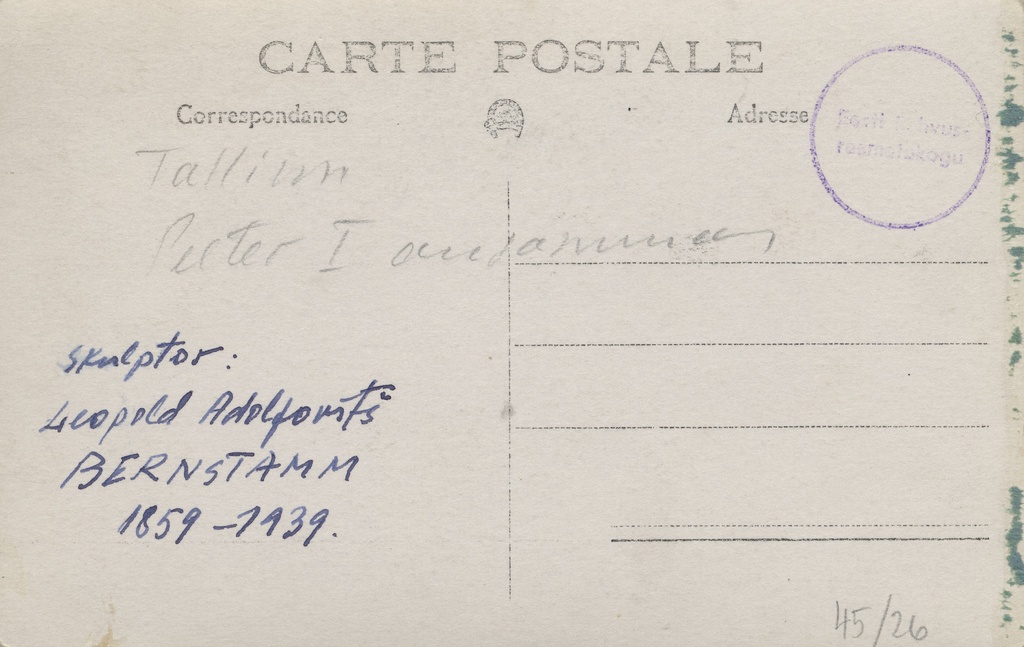 CARTE POSTALE
Correspondance
Adresse
Eesti
raamatukogu
Tallinn
Peeter I ausammas
Skulptor:
Leopold Adolfovitš
BERNSTAMM
1859-1939.
45/26